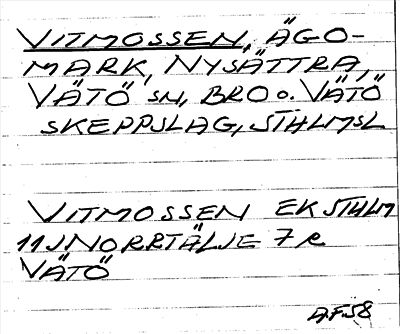 VITMOSSEN, ÄGO-
MARK, NYSÄTTRA,
VÄTÖ SN, BRO o. VÄTÖ
SKEPPSLAG, STHLMSL
VITMOSSEN EK STHLM
11J NORRTÄLJE 7 R
VÄTÖ
A.F. 58